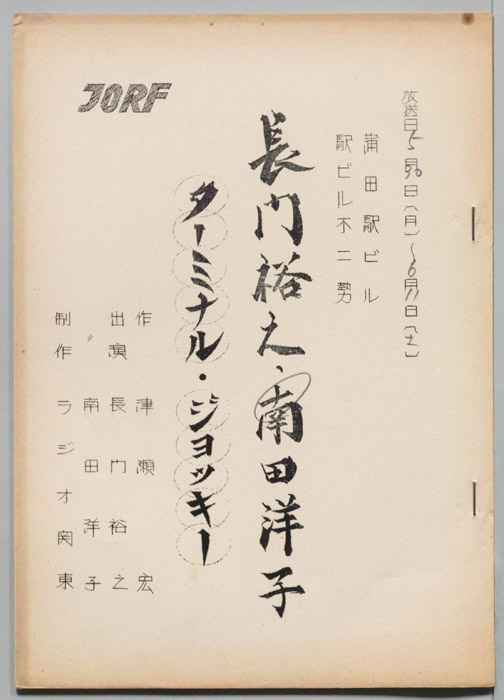 放送日 5月30日(月)〜6月11日(土)
蒲田駅ビル
駅ビル不二勢
長門裕之、南田洋子
ターミナル・ジョッキー
JORF
作 津瀬宏
出演 長門裕之
〃 南田洋子
制作 ラジオ関東